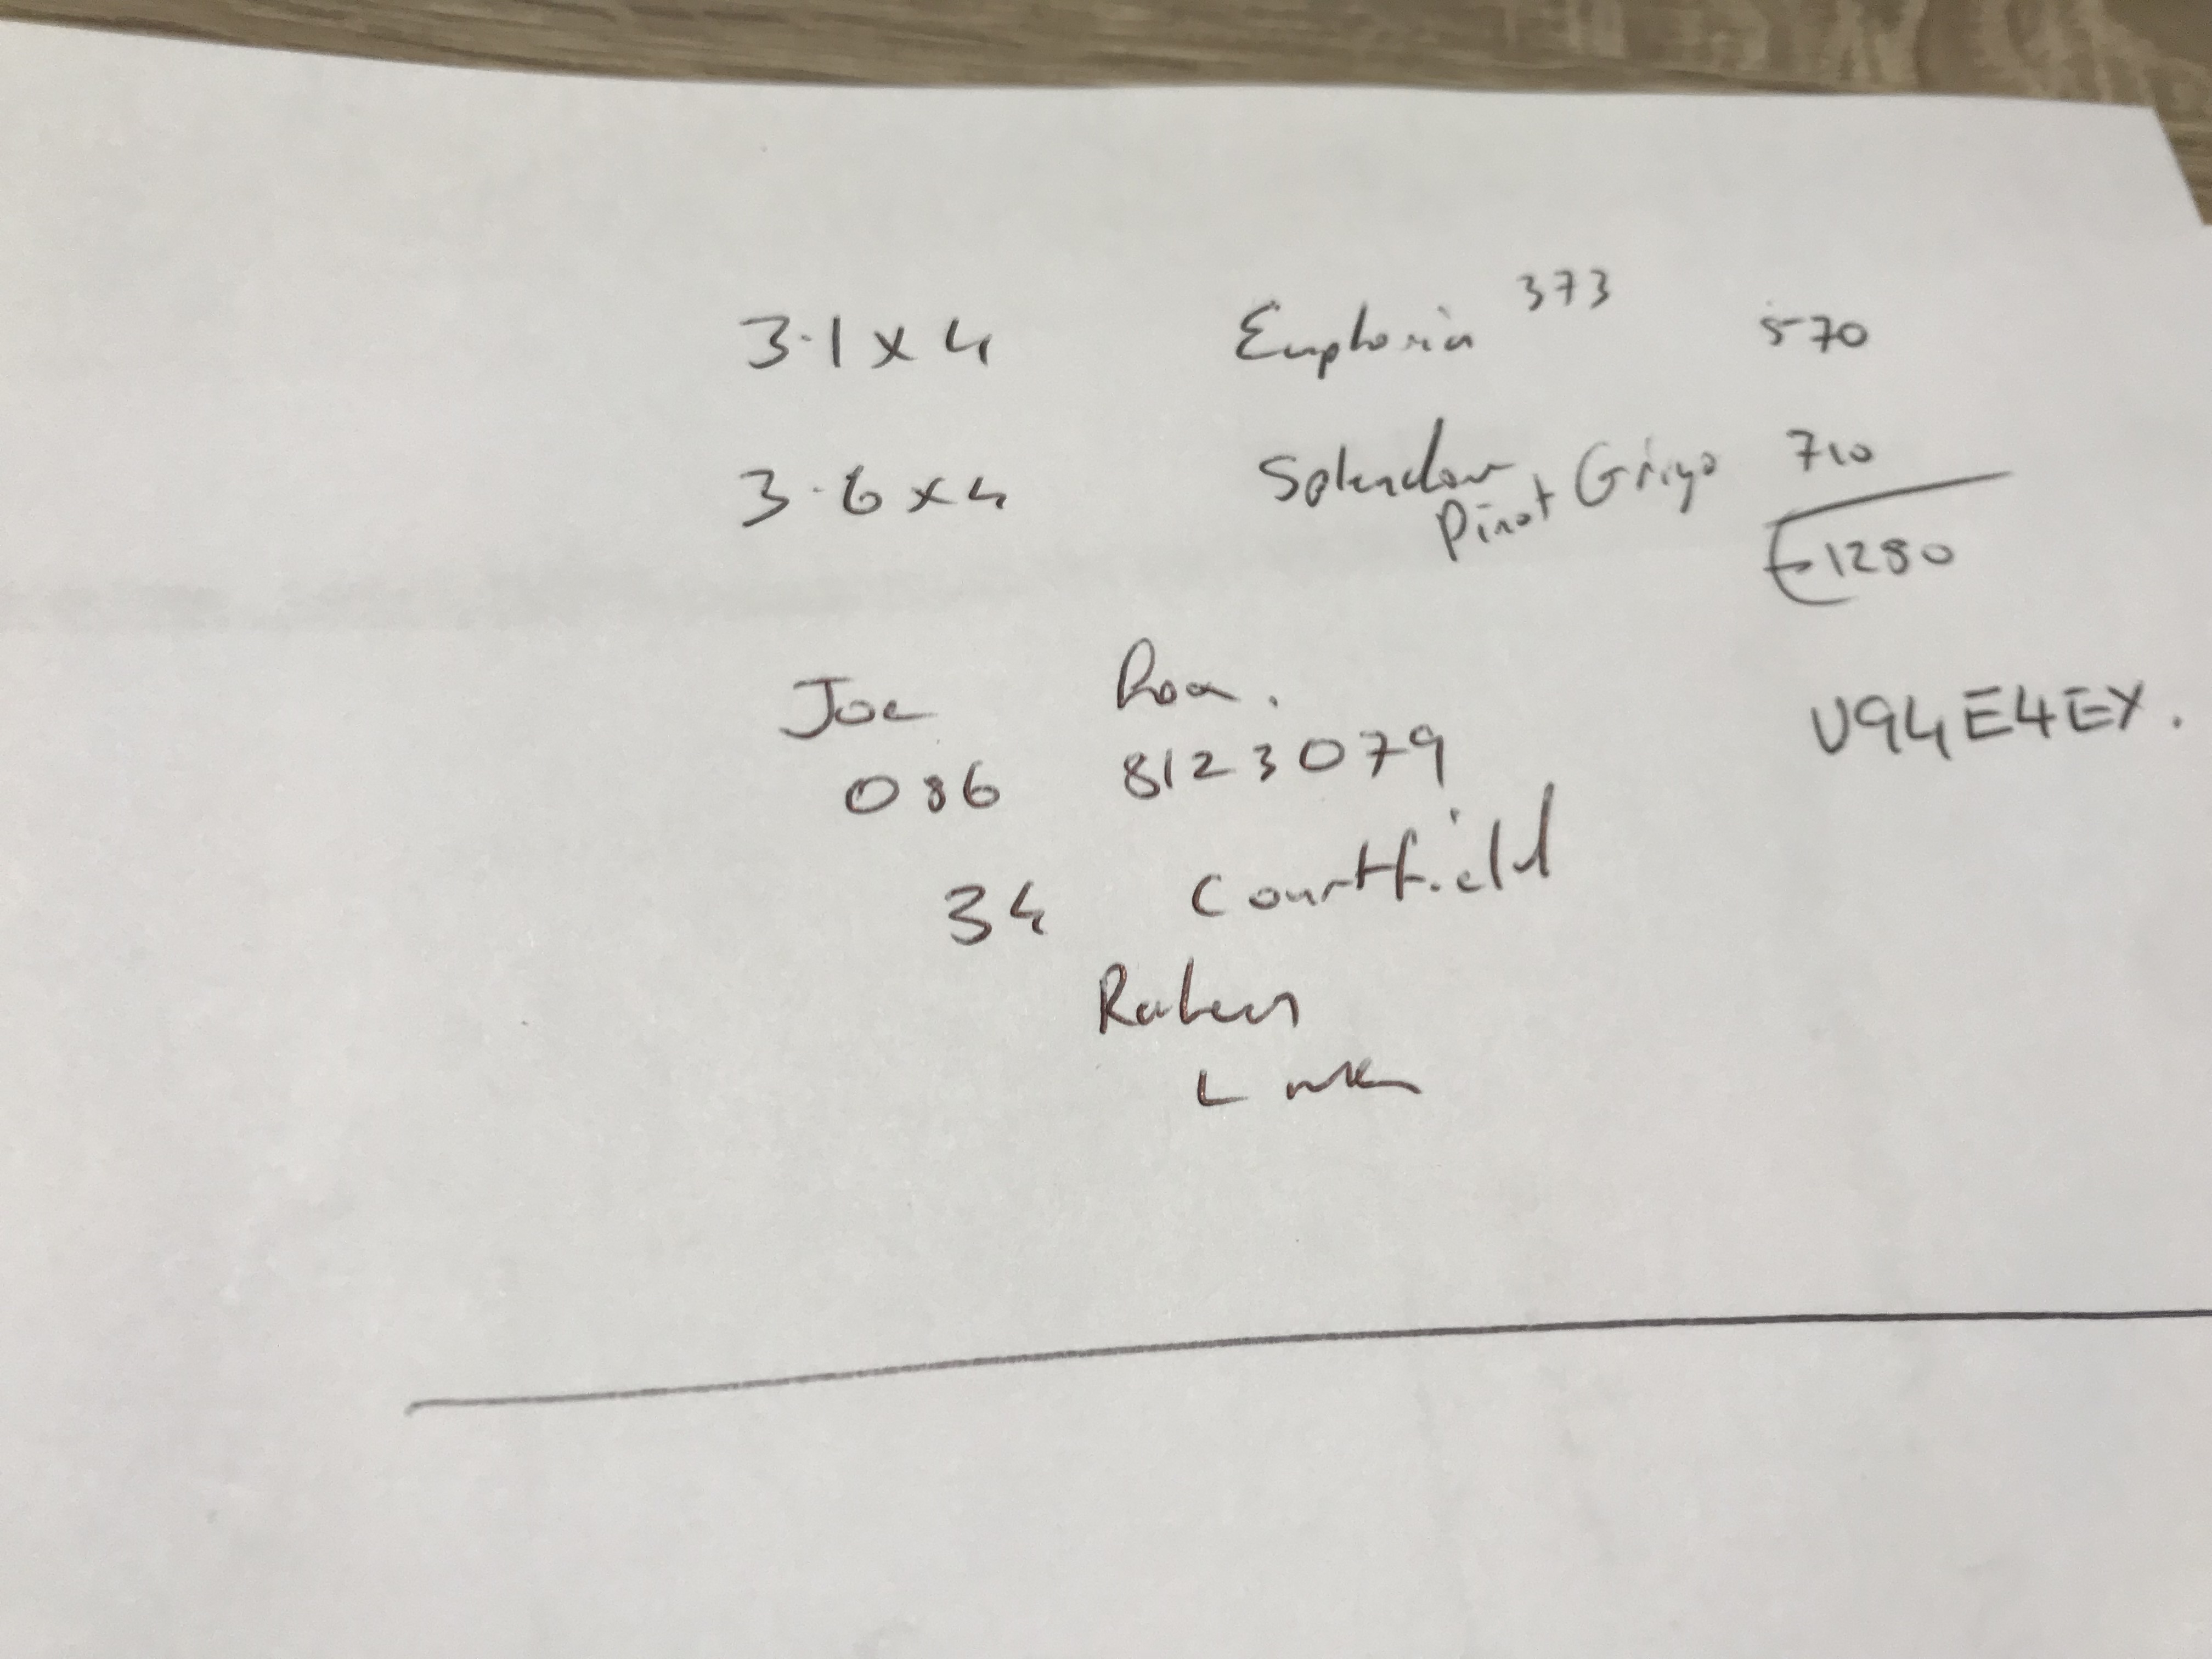 3.1 x 4 Euphoria 373 570
3.6 x 4 Splendour Pinot Grigo 710
€1280
Joe V94E4EX.
086 8123079
34 Courtfield
Raheen